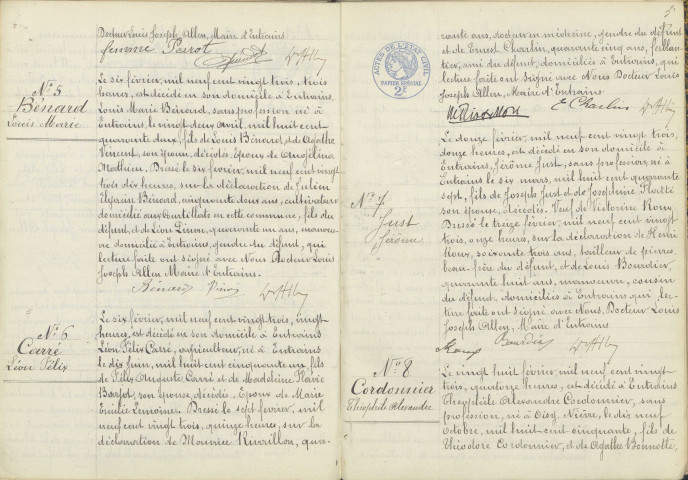 Docteur Louis Joseph Allen, Maire d'Entrains
femme Perrot
Dr Allen
N° 5
Bénard
Louis Marie
Le six février, mil neuf cent vingt trois, trois
heures, est décédé en son domicile à Entrains
Louis Marie Bénard, sans profession né à
Entrains, le vingt deux Avril, mil huit cent
quarante deux, fils de Louis Bénard, et de Agathe
Vincent, son épouse, décédés, Epoux de Angélina
Mathieu. Dressé le six février, mil neuf cent vingt
trois dix heures, sur la déclaration de Julien
Bénard, cinquante deux ans, cultivateur
domicilié aux en cette commune, fils du
défunt, et de Léon quarante un ans, manœu-
vre domicilié à Entrains, gendre du défunt, qui
lecture faite ont signé avec Nous Docteur Louis
Joseph Allen Maire d'Entrains.
Bénard Dr Allen
N° 6
Carré
Léon Félix
Le six février, mil neuf cent vingt trois, vingt
heures, est décédé en son domicile à Entrains
Léon Félix Carré, agriculteur, né à Entrains
le dix Juin, mil huit cent cinquante un, fils
de Félix Auguste Carré et de Madeleine Flavie
son épouse, décédés, Epoux de Marie
Emilie Lemoine. Dressé le sept février, mil
neuf cent vingt trois, quinze heures, sur la
déclaration de Maurice qua-
5
ACTES DE L'ÉTAT CIVIL
PAPIER SPÉCIAL
2F
rante ans, docteur en médecine, gendre du défunt
et de Ernest Charlin, quarante cinq ans, ferblan-
tier, ami du défunt, domiciliés à Entrains, qui
lecture faite ont signé avec Nous Docteur Louis
Joseph Allen, Maire d'Entrains
E Charlin Dr Allen
N° 7
Just
Jérôme
Le douze février, mil neuf cent vingt trois,
douze heures, est décédé en son domicile à
Entrains, Jérôme Just, sans profession, né à
Entrains le six mars, mil huit cent quarante
sept, fils de Joseph Just et de Josephine
son épouse, décédés. Veuf de Victorine Roux
Dressé le treize février, mil neuf cent vingt
trois, onze heures, sur la déclaration de Henri
Roux, soixante trois ans, tailleur de pierres,
beau-frère du défunt, et de Louis Bourdier,
quarante huit ans, manœuvre, cousin
du défunt, domiciliés à Entrains qui lec-
ture faite ont signé avec Nous, Docteur Louis
Joseph Allen, Maire d'Entrains
Roux Bourdier Dr Allen
N° 8
Cordonnier
Théophile Alexandre
Le vingt huit février, mil neuf cent vingt
trois, quatorze heures, est décédé à Entrains
Théophile Alexandre Cordonnier, sans
profession, né à Oisy, Nièvre, le dix neuf
Octobre, mil huit cent cinquante, fils de
Théodore Cordonnier, et de Agathe Bonnotte,